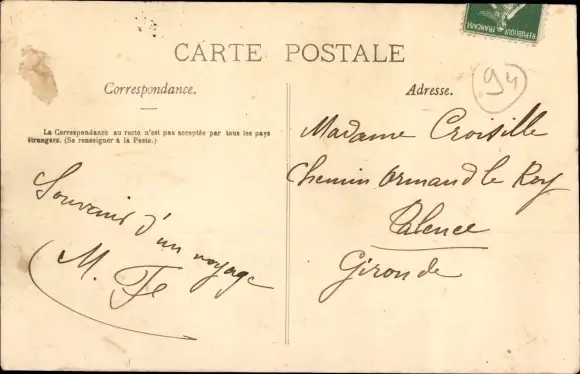 CARTE POSTALE
Correspondance.
La Correspondance au recto n'est pas acceptée par tous les pays
étrangers. (Se renseigner à la Poste.)
Souvenir d'un voyage
M. Fe
Adresse.
94
Madame Croisille
Chemin Ormand le Roy
Talence
Gironde
REPUBLIQUE FRANÇAISE